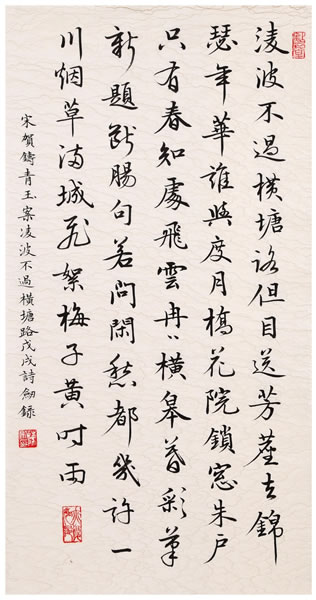 淩波不過橫塘路但目送芳塵去錦
瑟年華誰與度月橋花院鎖窗朱户
只有春知處飛雲冉〻橫皋暮彩筆
新題斷腸句若問閑愁都幾許一
川烟草滿城飛絮梅子黃時雨
宋賀鑄青玉案凌波不過橫塘路戊戌詩劍錄